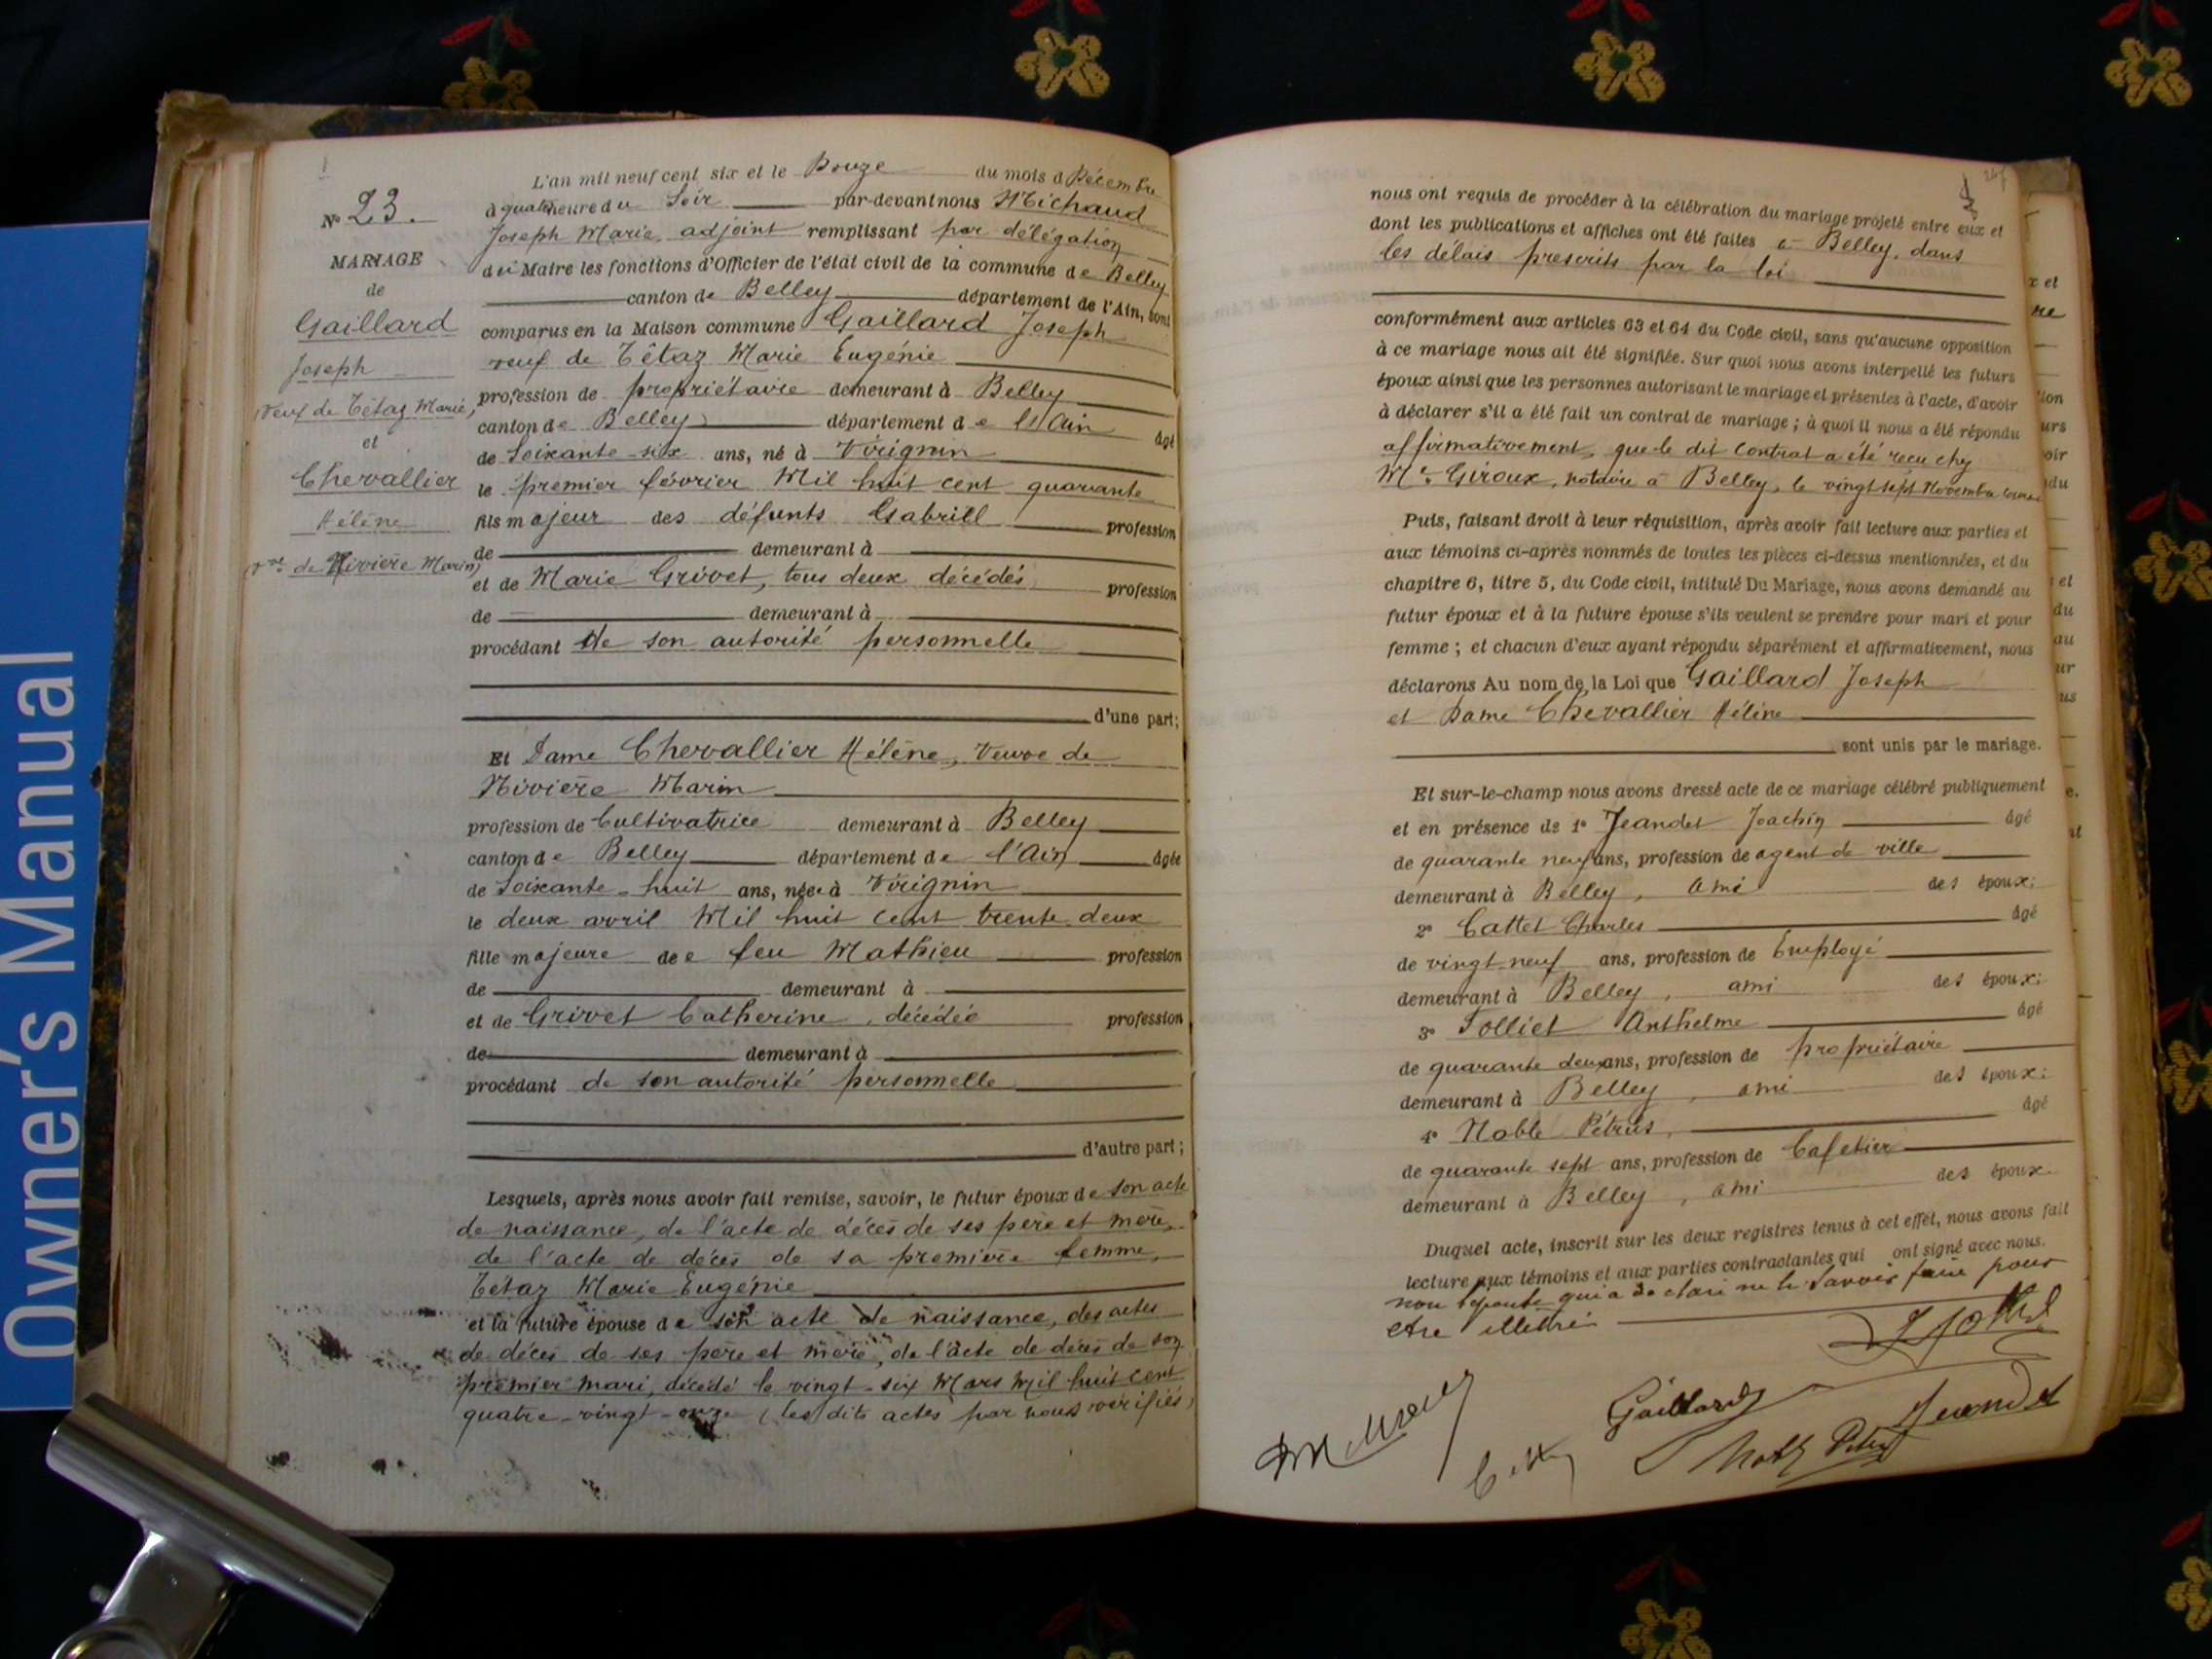 Owner's Manual
N° 23.
MARIAGE
de
Gaillard
Joseph
Veuf de Tétaz Marie,
et
Chevallier
Hélène
Vve de Rivière Marin,
L'an mil neuf cent six et le Douze du mois d Décembre
à quatre heure du Soir par-devant nous Michaud
Joseph Marie, adjoint remplissant par délégation
du Maire les fonctions d'Officier de l'état civil de la commune de Belley
canton de Belley département de l'Ain, sont
comparus en la Maison commune Gaillard Joseph
veuf de Tétaz Marie Eugénie
profession de propriétaire demeurant à Belley
canton de Belley département d e l'Ain âgé
de Soixante-six ans, né à Virignin
le premier février Mil huit cent quarante
fils majeur des défunts Gabriel profession
de demeurant à
et de Marie Grivet, tous deux décédés profession
de demeurant à
procédant de son autorité personnelle
d'une part;
Et Dame Chevallier Hélène, Veuve de
Rivière Marin
profession de Cultivatrice demeurant à Belley
canton de Belley département de l'Ain âgée
de Soixante-huit ans, née à Virignin
le deux avril Mil huit cent trente deux
fille majeure de feu Mathieu profession
de demeurant à
et de Grivet Catherine, décédée profession
de demeurant à
procédant de son autorité personnelle
d'autre part;
Lesquels, après nous avoir fait remise, savoir, le futur époux de son acte
de naissance, de l'acte de décès de ses père et mère,
de l'acte de décès de sa première femme,
Tétaz Marie Eugénie
et la future épouse de son acte de naissance, des actes
de décès de ses père et mère, de l'acte de décès de son
premier mari, décédé le vingt-six Mars Mil huit cent
quatre-vingt-onze (les dits actes par nous vérifiés)
nous ont requis de procéder à la célébration du mariage projeté entre eux et
dont les publications et affiches ont été faites à Belley, dans
les délais prescrits par la loi
conformément aux articles 63 et 64 du Code civil, sans qu'aucune opposition
à ce mariage nous ait été signifiée. Sur quoi nous avons interpellé les futurs
époux ainsi que les personnes autorisant le mariage et présentes à l'acte, d'avoir
à déclarer s'il a été fait un contrat de mariage; à quoi il nous a été répondu
affirmativement, que le dit Contrat a été reçu chez
Me Giroux, notaire à Belley, le vingt sept Novembre
Puis, faisant droit à leur réquisition, après avoir fait lecture aux parties et
aux témoins ci-après nommés de toutes les pièces ci-dessus mentionnées, et du
chapitre 6, titre 5, du Code civil, intitulé Du Mariage, nous avons demandé au
futur époux et à la future épouse s'ils veulent se prendre pour mari et pour
femme; et chacun d'eux ayant répondu séparément et affirmativement, nous
déclarons Au nom de la Loi que Gaillard Joseph
et Dame Chevallier Hélène
sont unis par le mariage.
Et sur-le-champ nous avons dressé acte de ce mariage célébré publiquement
et en présence de 1° Jeandet Joachin âgé
de quarante neuf ans, profession de agent de ville
demeurant à Belley, ami des époux;
2° Cattet Charles âgé
de vingt-neuf ans, profession de Employé
demeurant à Belley, ami des époux;
3° Folliet Anthelme âgé
de quarante deux ans, profession de propriétaire
demeurant à Belley, ami des époux;
4° Noble Pétrus, âgé
de quarante sept ans, profession de Cafetier
demeurant à Belley, ami des époux.
Duquel acte, inscrit sur les deux registres tenus à cet effet, nous avons fait
lecture aux témoins et aux parties contractantes qui ont signé avec nous.
non l'épouse qui a déclaré ne le savoir faire pour
être illettrée
Gaillard
Jeandet